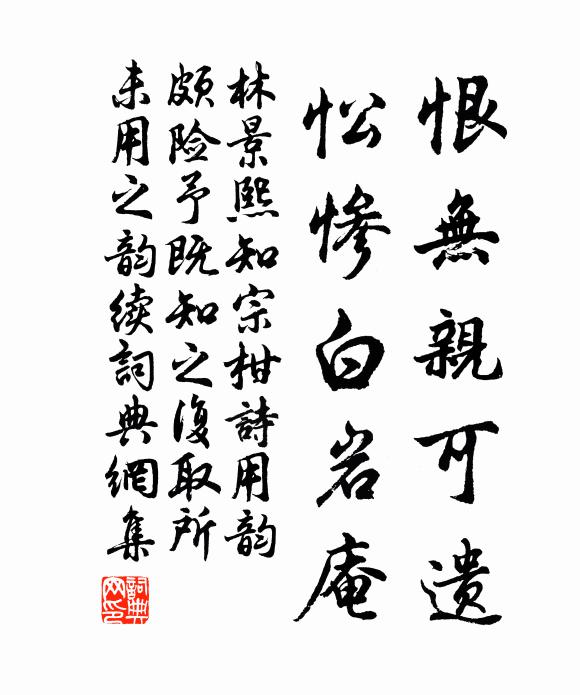 恨無親可遺
忪慘白岩庵
林景熙知宗柑詩用韵
頗险予既知之復取所
未用之韵续詞典網集
詞典网印